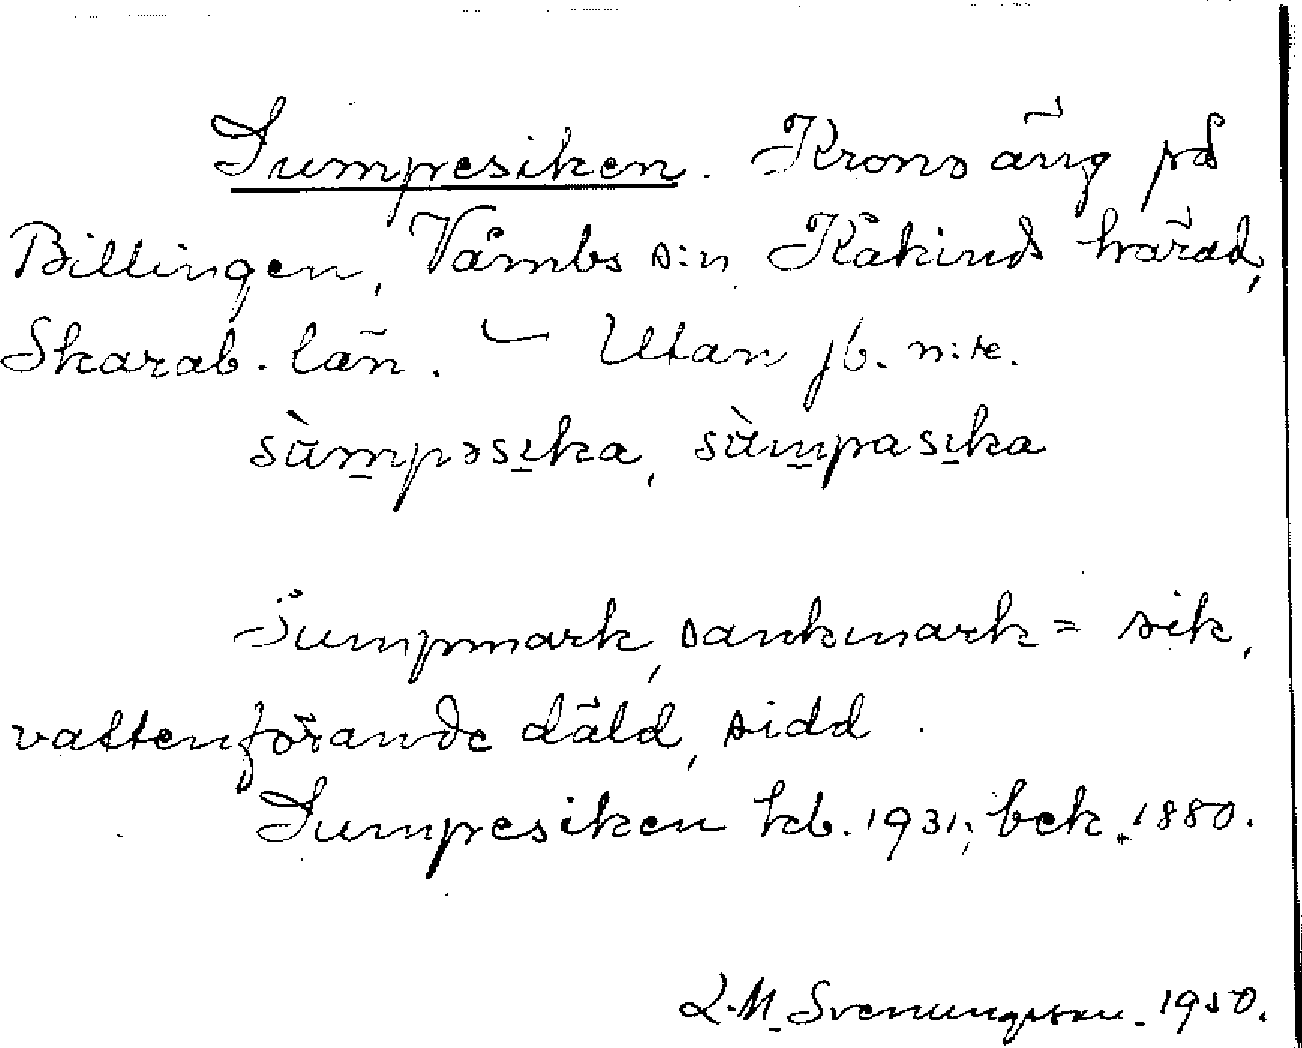 Sumpesiken. Krono äng på
Billingen, Våmbs s:n Kåkinds härad,
Skarab. län. – Utan jb. n:re.
sùm̲pəsı̲ka, sùm̲pası̲ka
Sumpmark, sankmark = sik,
vattenförande däld, sidd.
Sumpesiken kb. 1931; bek. 1880.
L.M. Svenungsson. 1950.